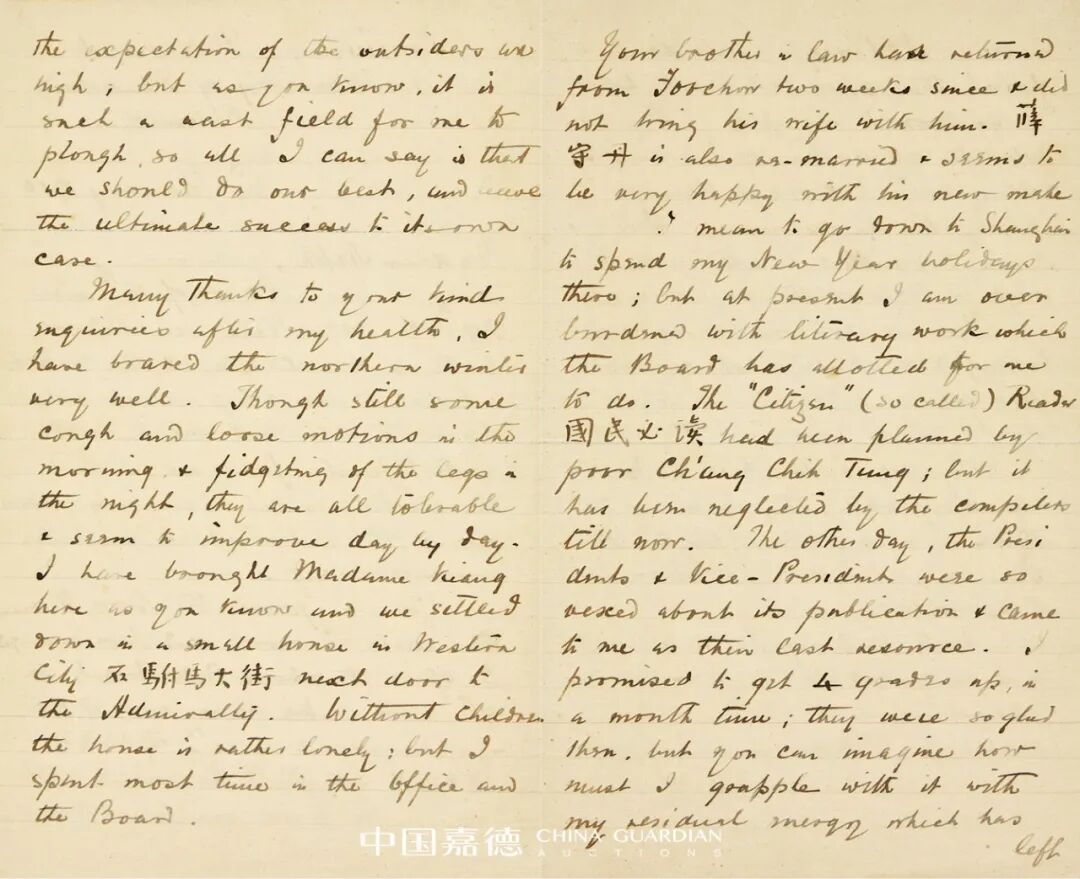 the expectation of the outsiders are
high; but as you know, it is
such a vast field for me to
plough, so all I can say is that
we should do our best, and leave
the ultimate success to its own
case.
Many thanks to your kind
enquiries after my health, I
have braved the northern winter
very well. Though still some
cough and loose motions in the
morning & fidgeting of the legs in
the night, they are all tolerable
& seem to improve day by day.
I have brought Madame Kiang
here as you know and we settled
down in a small house in Western
City 石駙馬大街 next door to
the Admiralty. Without children
the house is rather lonely; but I
spent most time in the Office and
the Board.
Your brother in law have returned
from Foochow two weeks since & did
not bring his wife with him.
守丹 is also re-married & seems to
be very happy with his new mate
mean to go down to Shanghai
to spend my New Year holidays
there; but at present I am over
burdened with literary work which
the Board has allotted for me
to do. The "Citizen" (so called) Reader
國民必讀 had been planned by
poor Ch'ang Chih Tung; but it
has been neglected by the compilers
till now. The other day, the Presi
dents & Vice-Presidents were so
vexed about its publication & came
to me as their last resource. I
promised to get 4 grades up, in
a month time; they were so glad
then, but you can imagine how
must I grapple with it with
my residual energy which has
left
中国嘉德 CHINA GUARDIAN
AUCTIONS